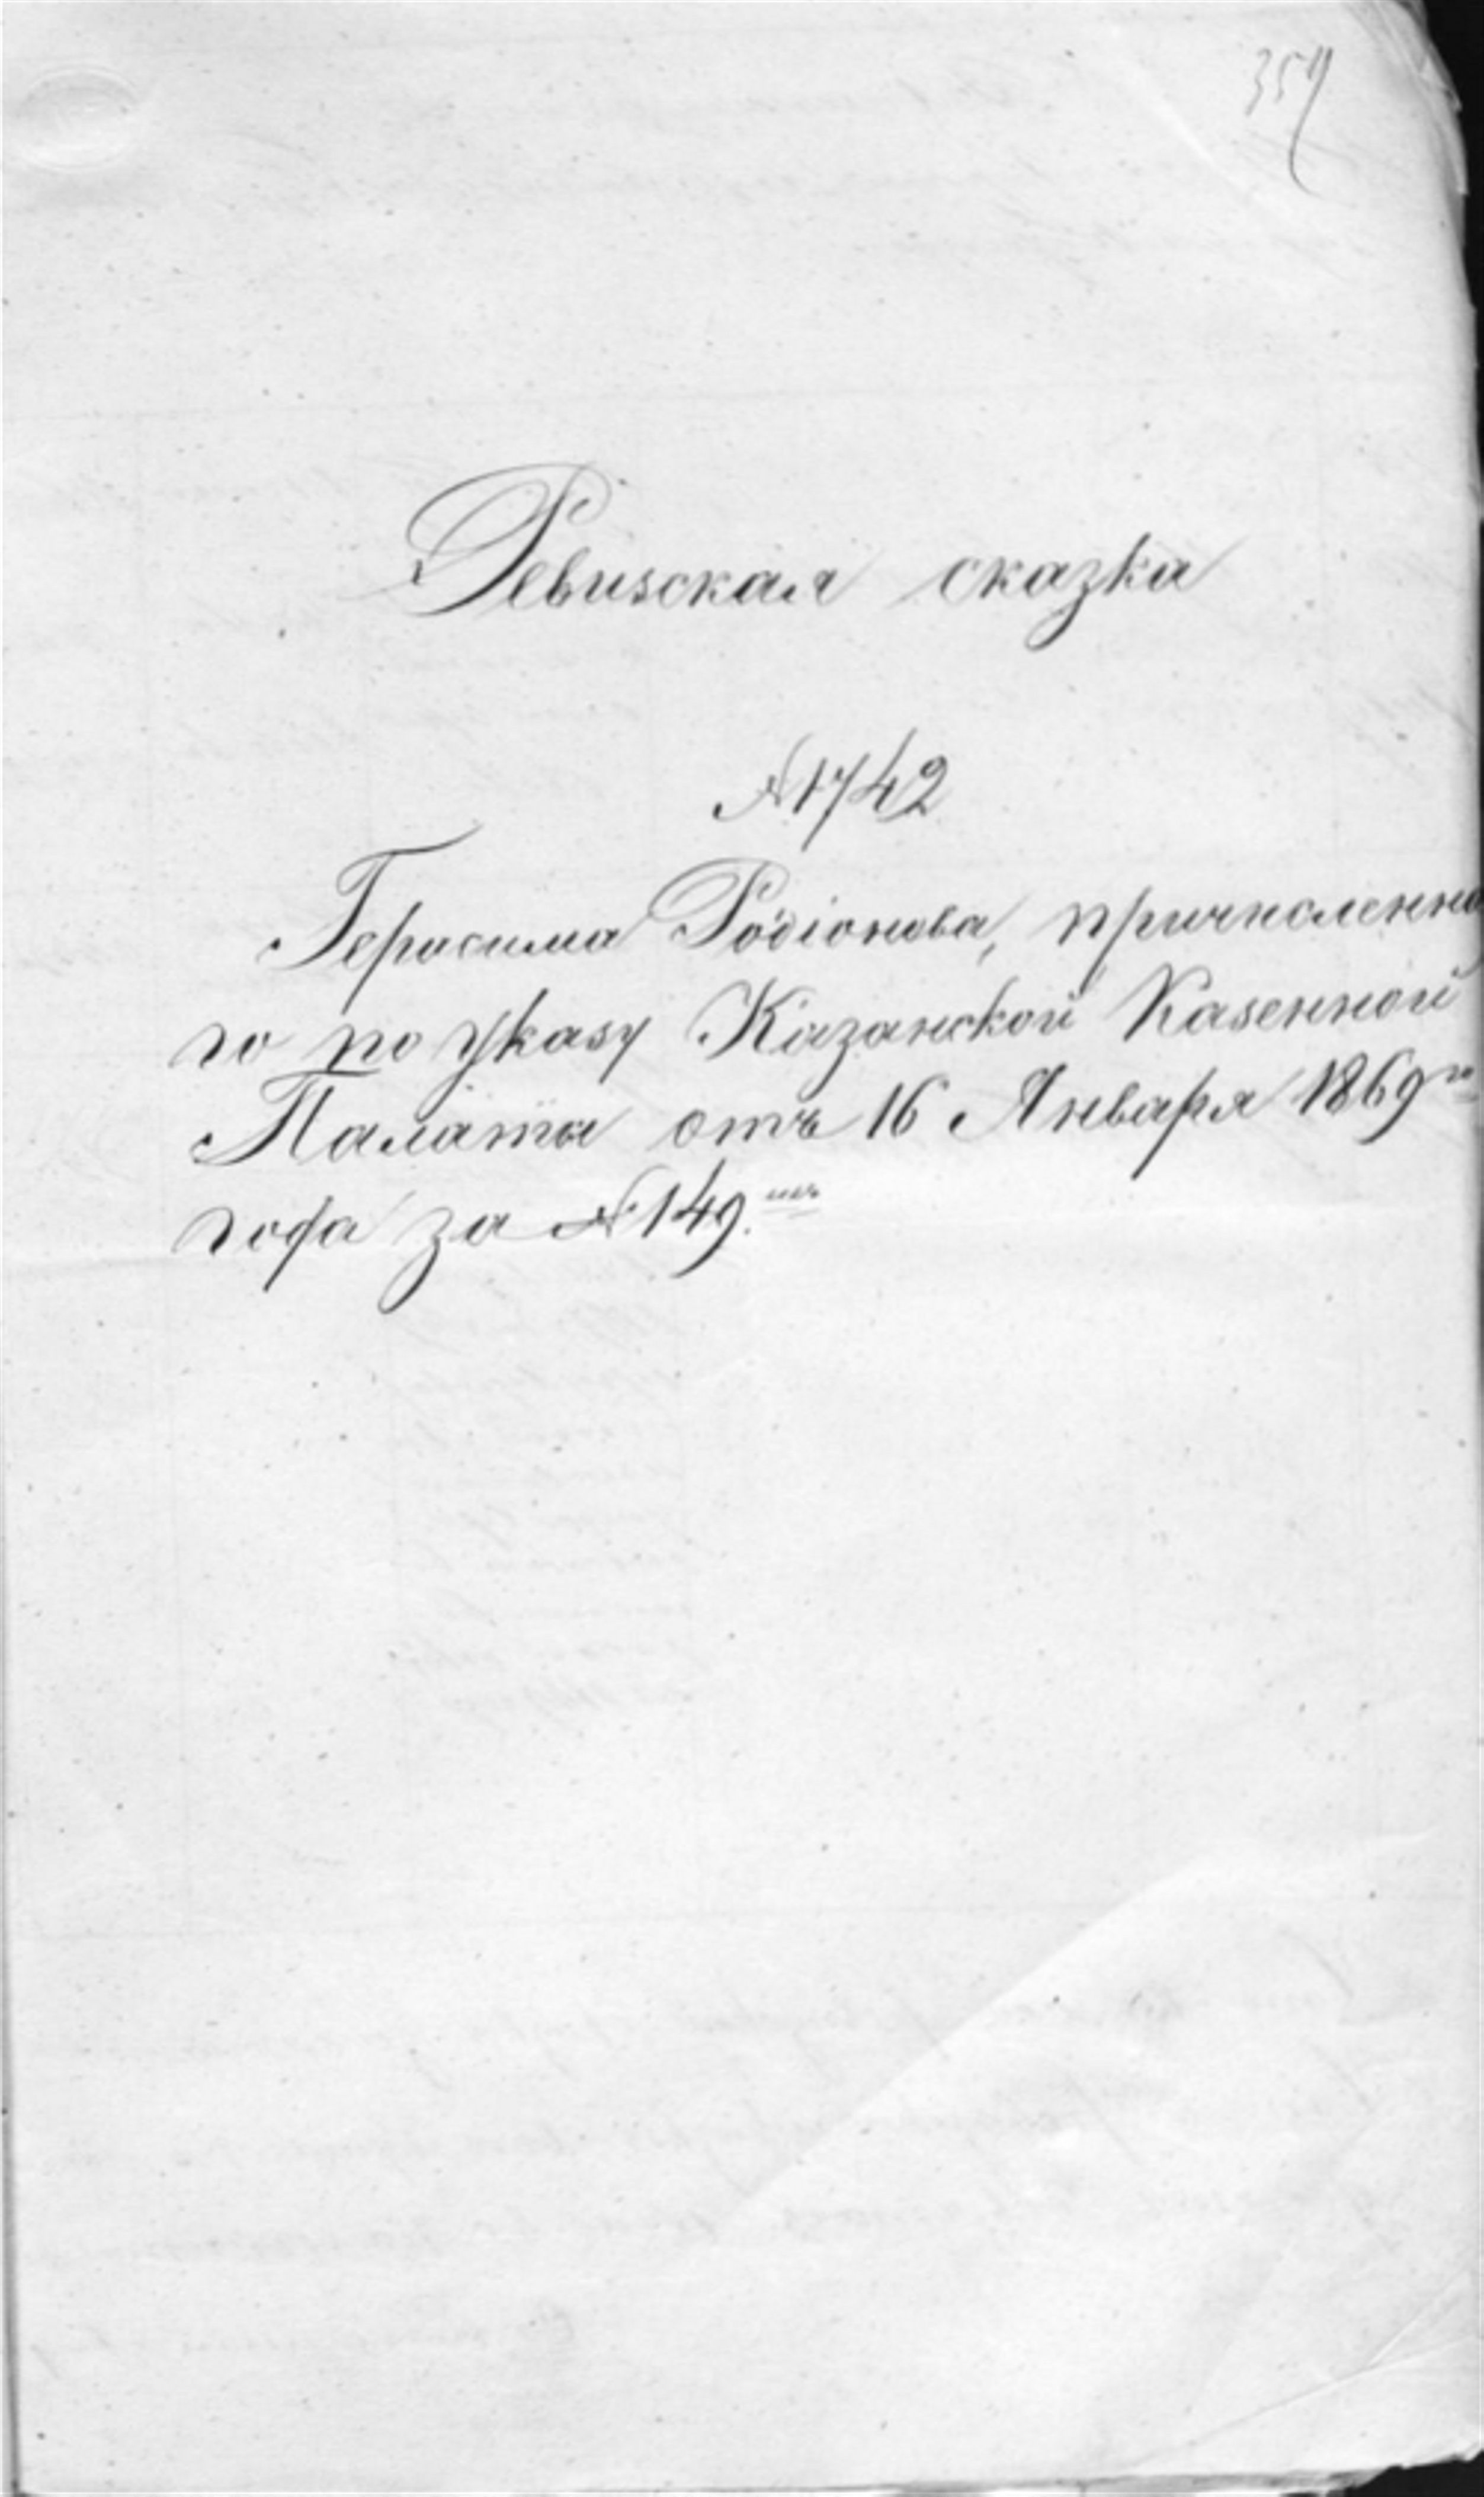 357
Ревизская сказка
№ 1742
Герасима Родіонова, причисленна
го по Указу Казанской Казенной
Палаты отъ 16 Января 1869 го
года за № 149.мъ